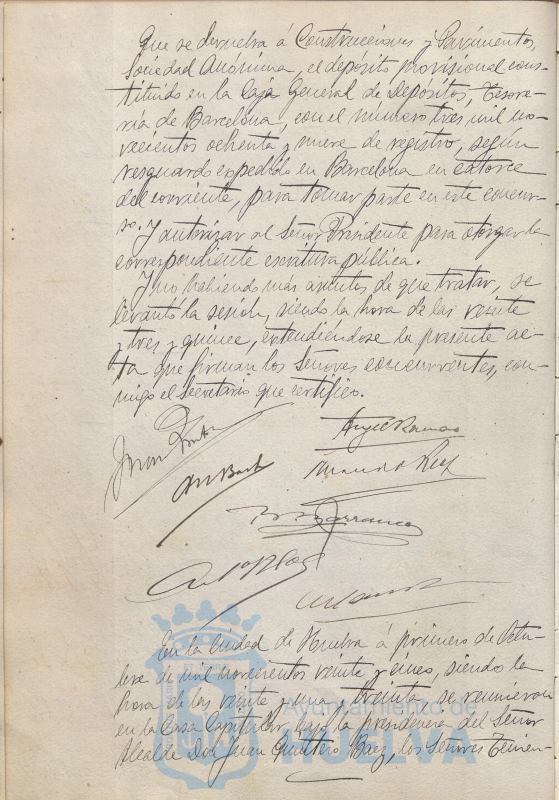 Que se devuelva á Construcciones y Pavimentos,
Sociedad Anónima, el depósito provisional cons-
tituido en la Caja General de Depósitos, Tesore-
ría de Barcelona, con el número tres mil no-
vecientos ochenta y nueve de registro, según
resguardo expedido en Barcelona en catorce
del corriente, para tomar parte en este concur-
so. Y autorizar al Señor Presidente para otorgar la
correspondiente escritura pública.
Y no habiendo más asuntos de que tratar, se
levantó la sesión, siendo la hora de las veinte
y tres y quince, extendiéndose la presente ac-
ta que firman los Señores concurrentes, con-
migo el Secretario que certifico.
Angel Ramos
Barranco
En la Ciudad de Huelva á primero de Octu-
bre de mil novecientos veinte y cinco, siendo la
hora de las veinte y una treinta, se reunieron
en la Casa Capitular, bajo la presidencia del Señor
Alcalde Don Juan Quintero Baez, los Señores Tenien-
Ayuntamiento de
HUELVA